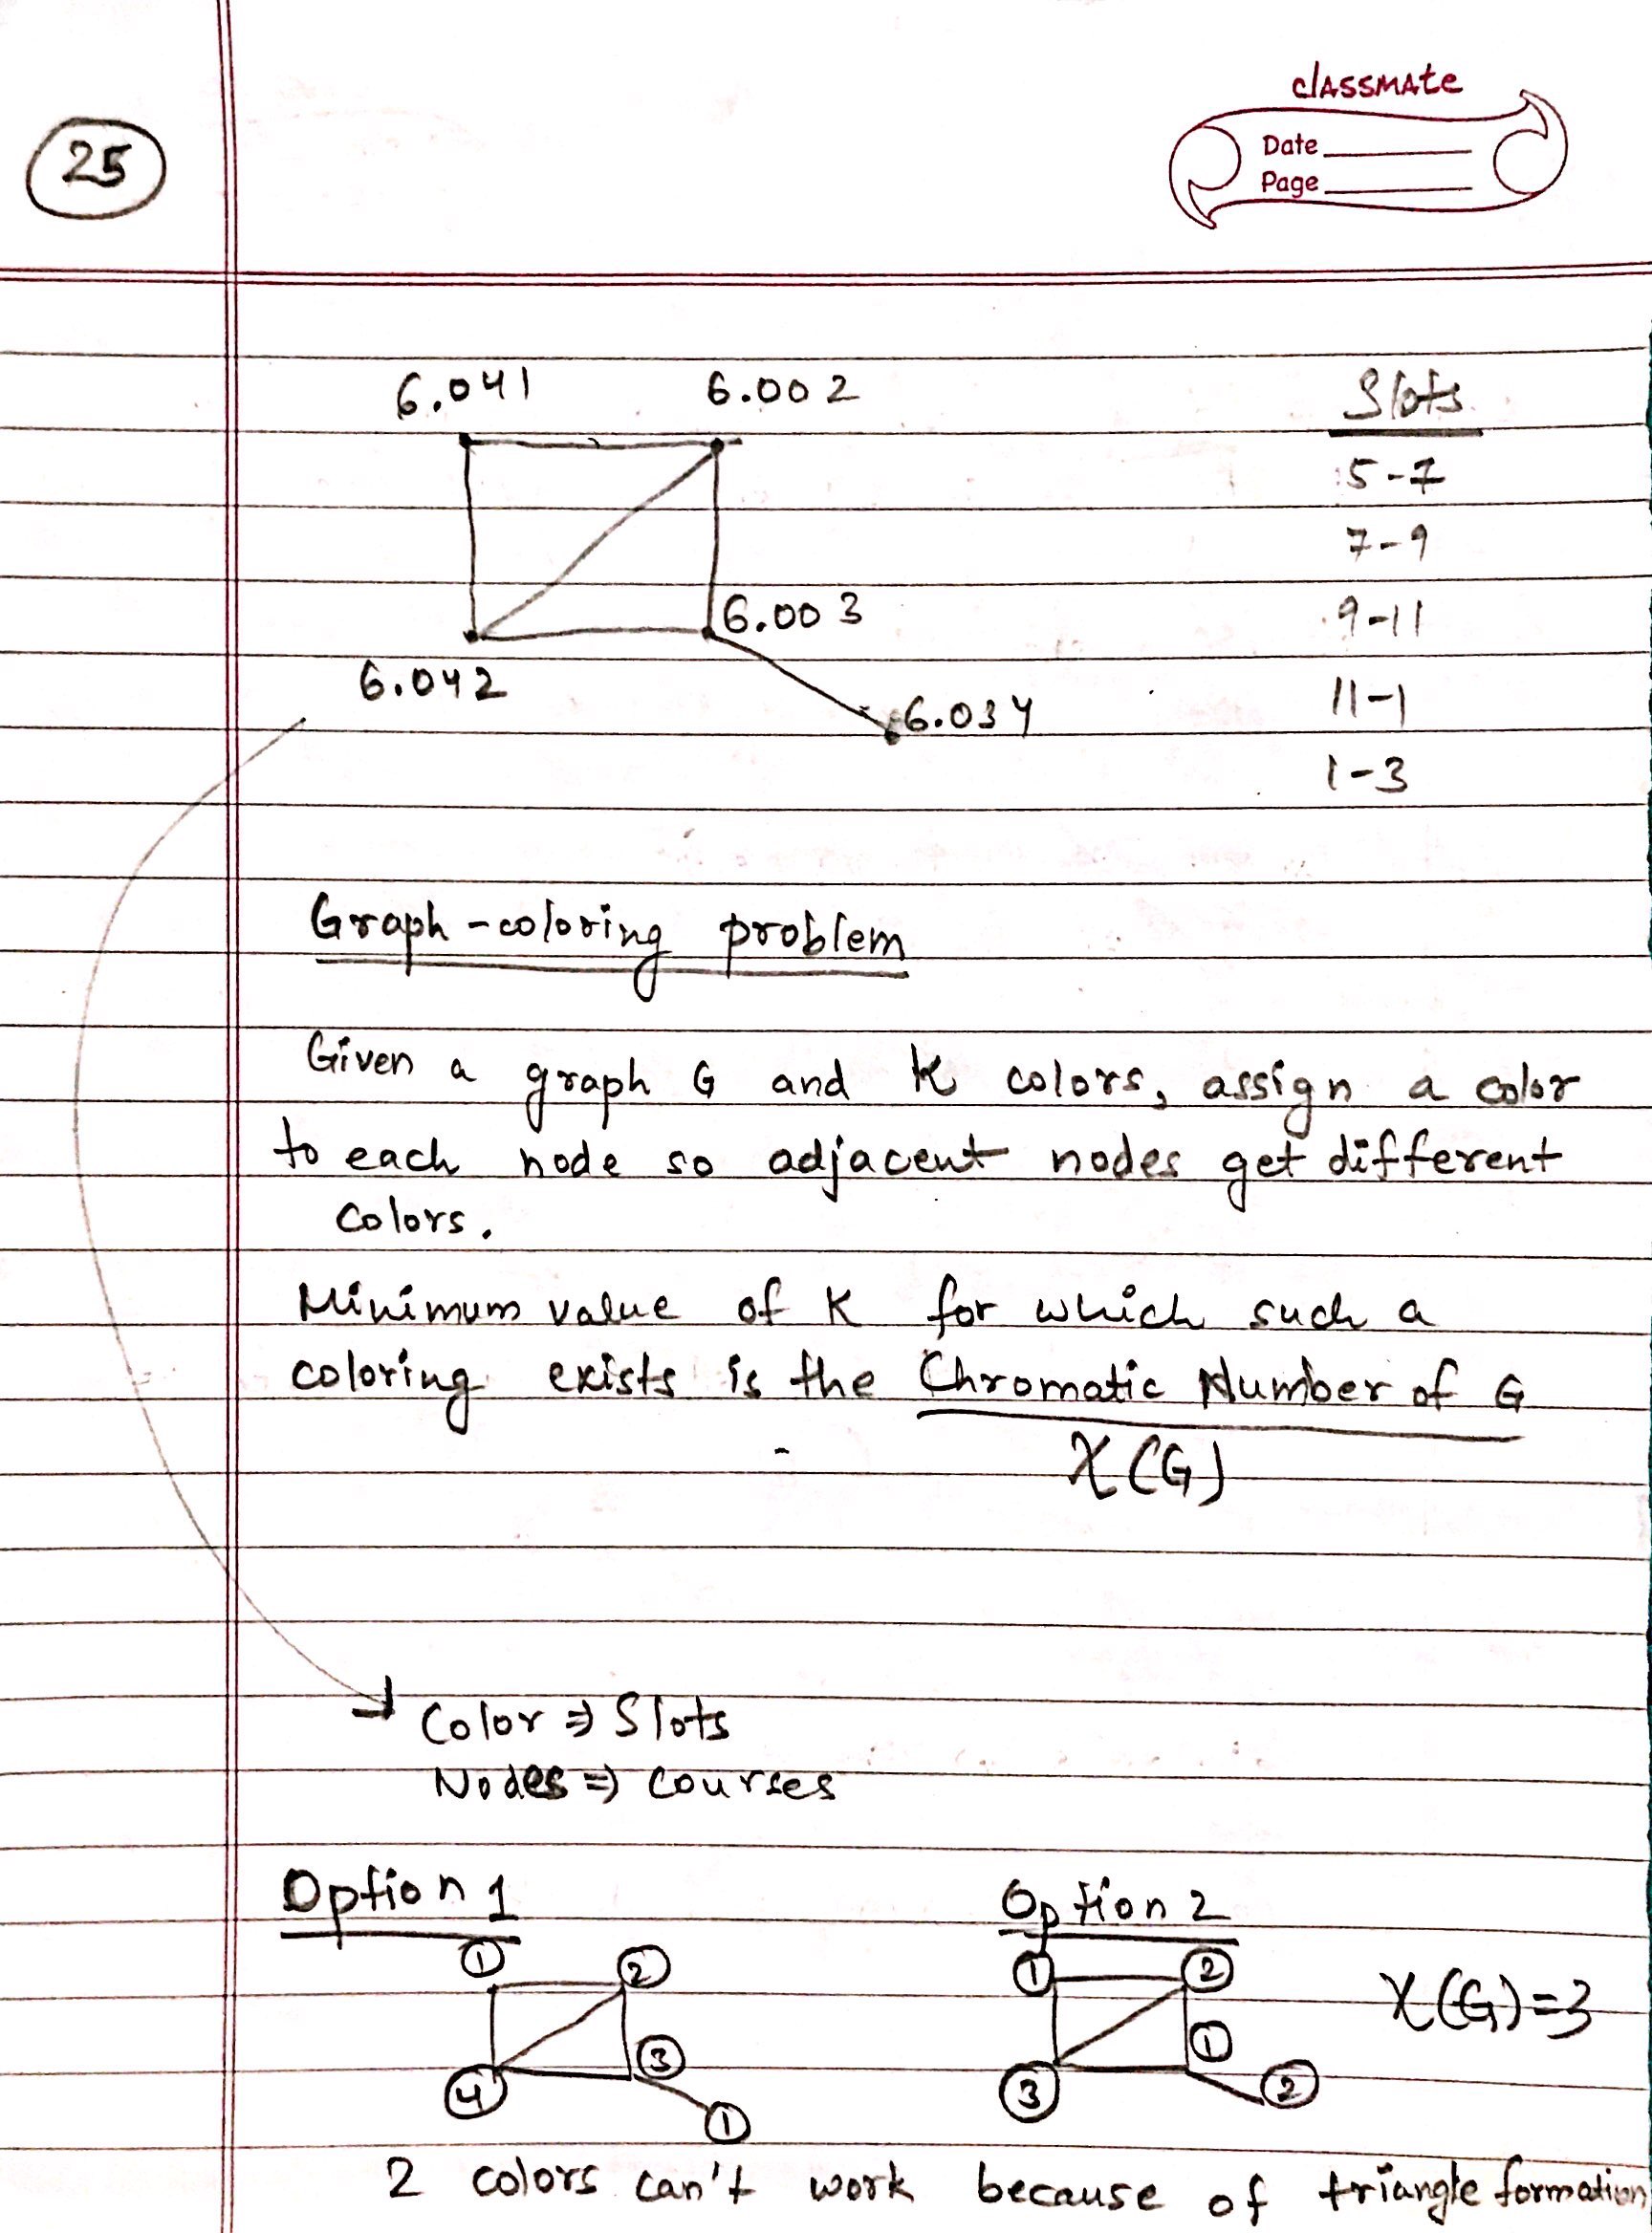 classmate
Date
Page
25
6.041 6.002 Slots
5-7
7-9
6.003 9-11
6.042 11-1
6.034
1-3
Graph-coloring problem
Given a graph G and K colors, assign a color
to each node so adjacent nodes get different
colors.
Minimum value of K for which such a
coloring exists is the Chromatic Number of G
χ(G)
Color ⇒ Slots
Nodes ⇒ courses
Option 1 Option 2
1 2 1 2 χ(G)=3
3 1
4 1 3 2
2 colors can't work because of triangle formation